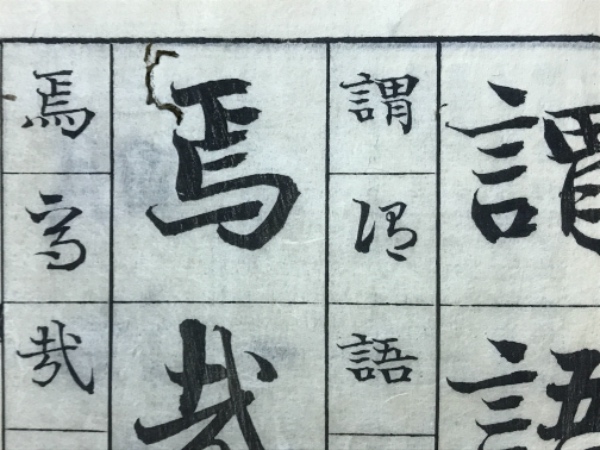 謂語
謂谓語
焉哉
焉焉哉